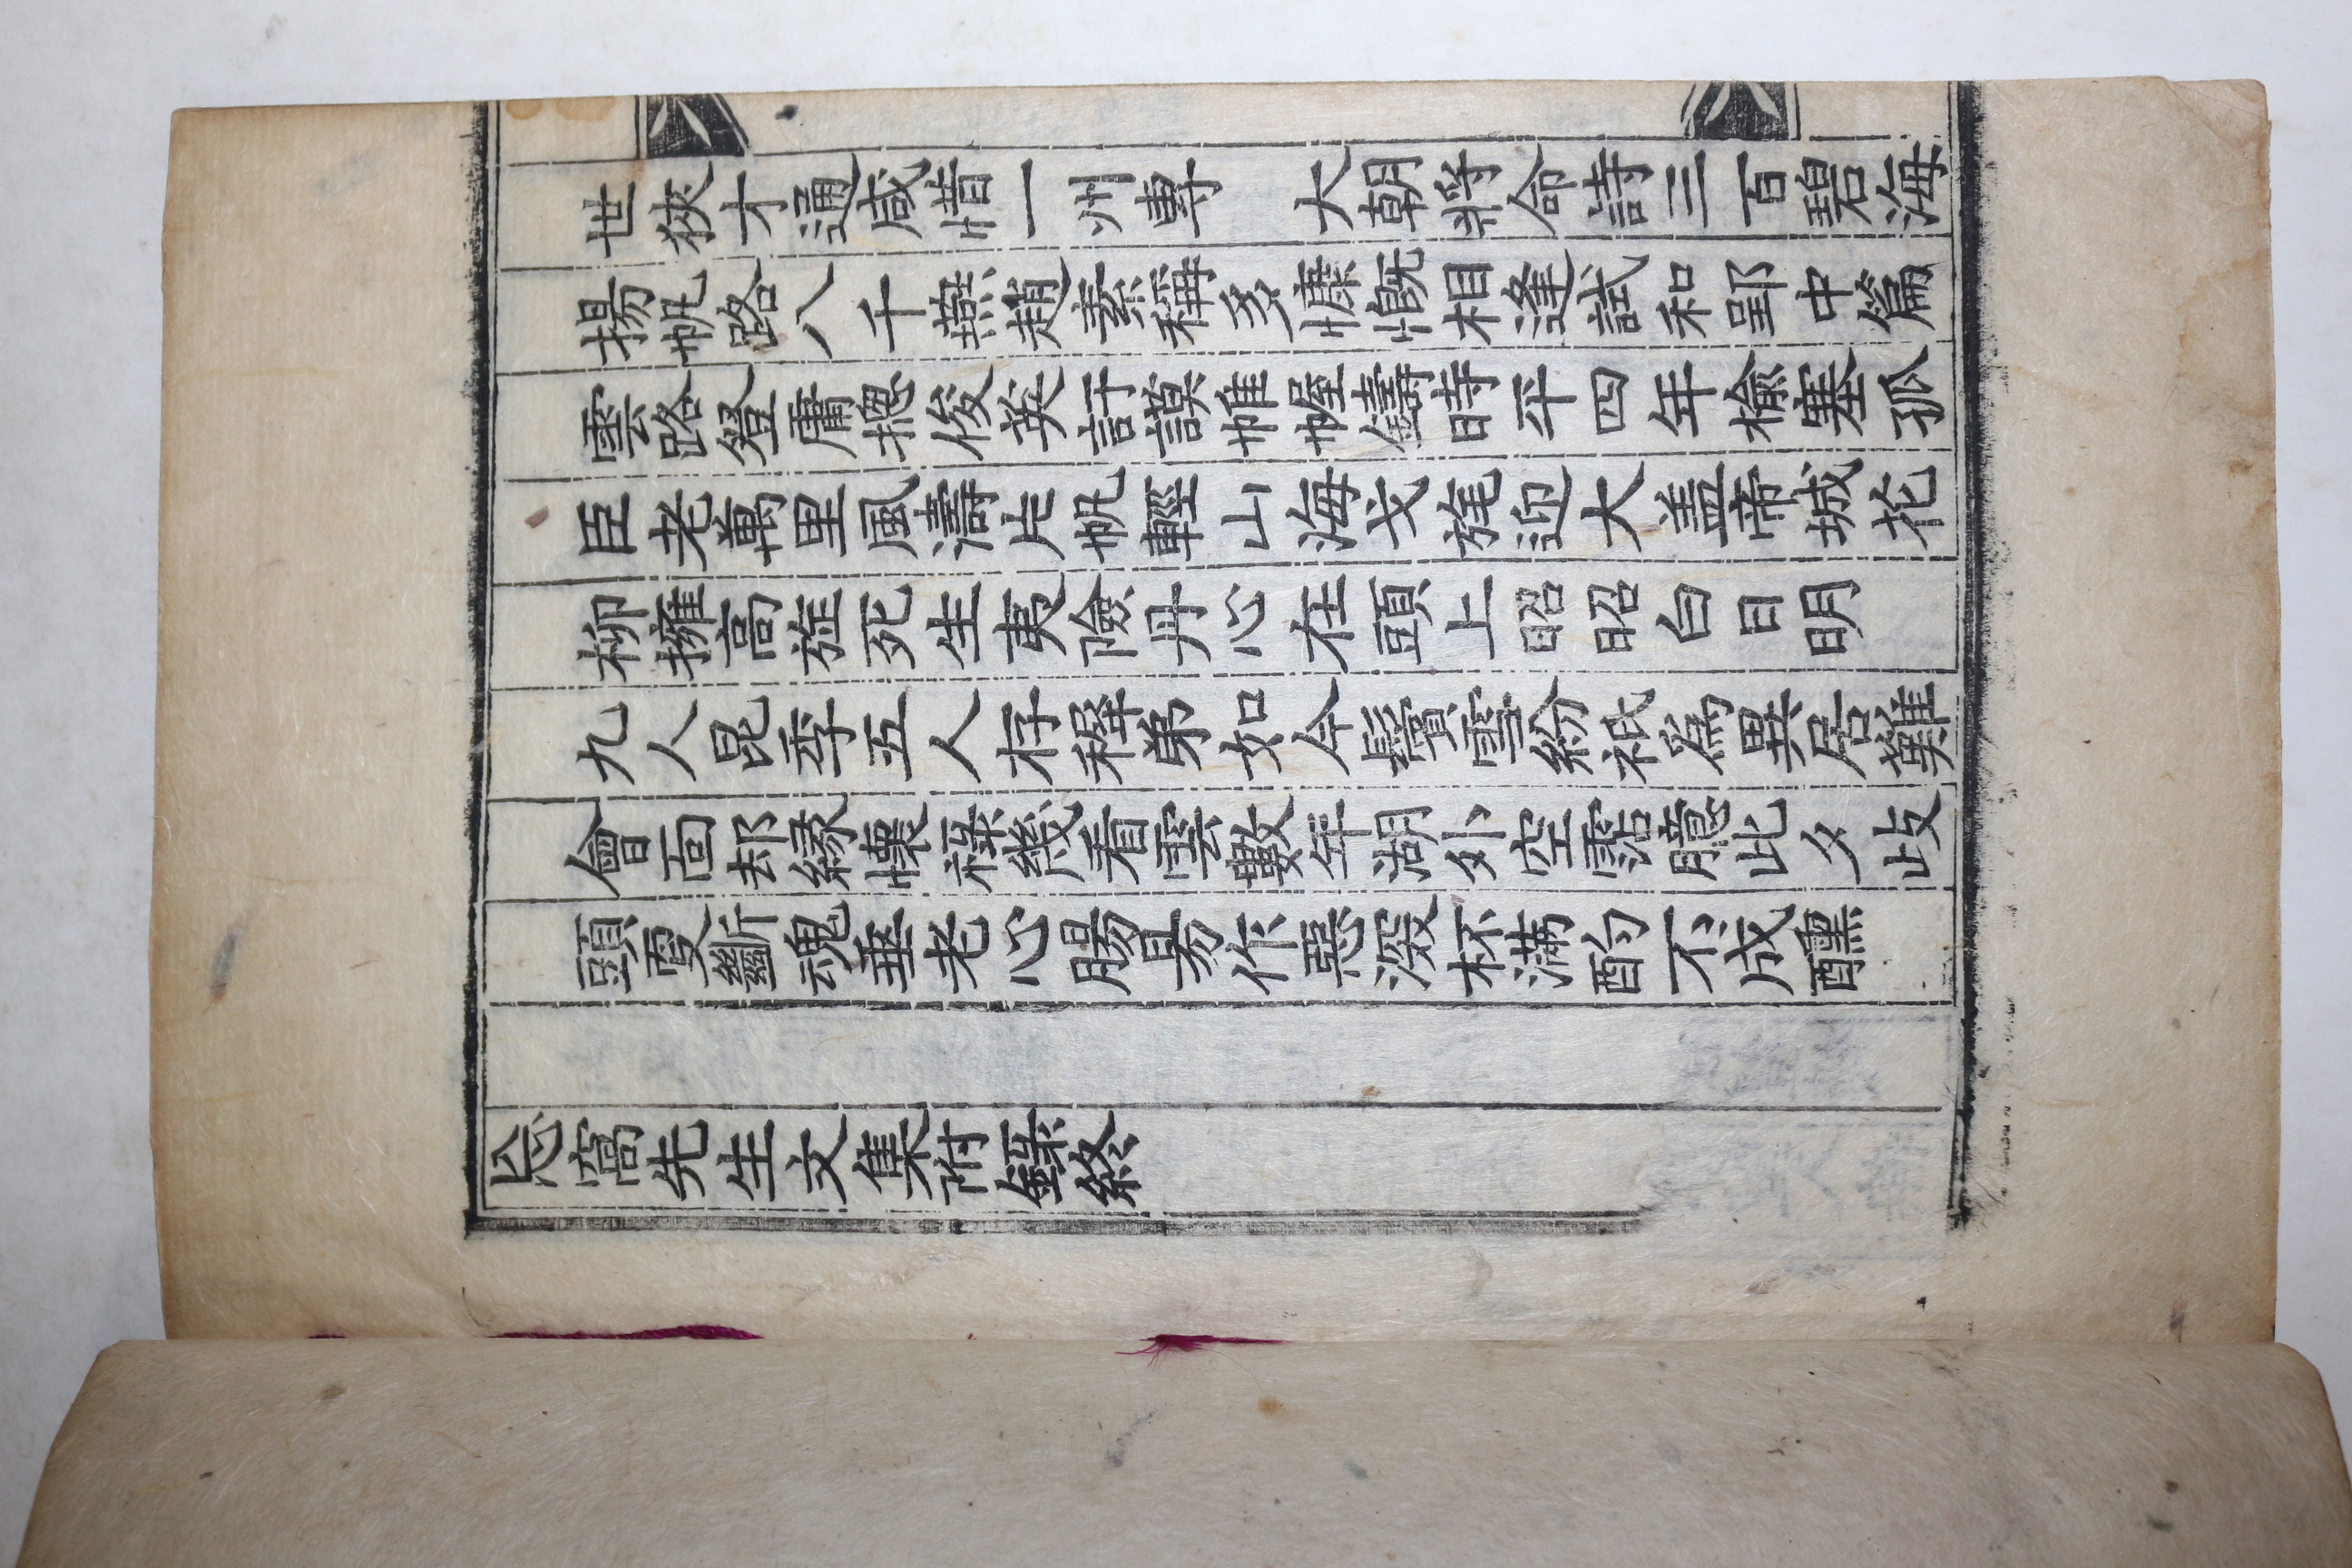 世狹才通咸惜一州專　大朝將命詩三百碧海
揚帆路八千燕趙素稱多慷慨相逢試和郢中篇
雲路登庸摠俊英訏謨帷幄鑄時平四年楡塞孤
臣老萬里風濤片帆輕山海戈旄迎大盖帝城花
柳擁高旌死生夷險丹心在頭上昭昭白日明
九人昆季五人存穉弟如今鬢雪紛祇爲異居難
會面却緣懷祿幾看雲數年湖外空霑臆此夕歧
頭更斷魂垂老心腸易作惡深杯滿酌不成醺
忘窩先生文集附錄終